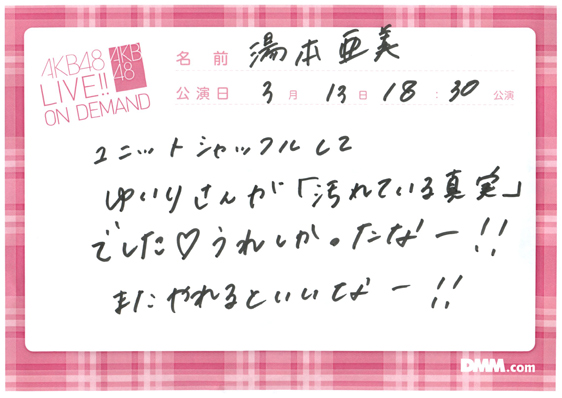 AKB48
LIVE!!
ON DEMAND
AKB
48
名 前 湯本亜美
公演日 3 月 13 日 18 : 30 公演
ユニットシャッフルして
ゆいりさんが「汚れている真実」
でした♡うれしかったなー!!
またやれるといいなー!!
DMM.com